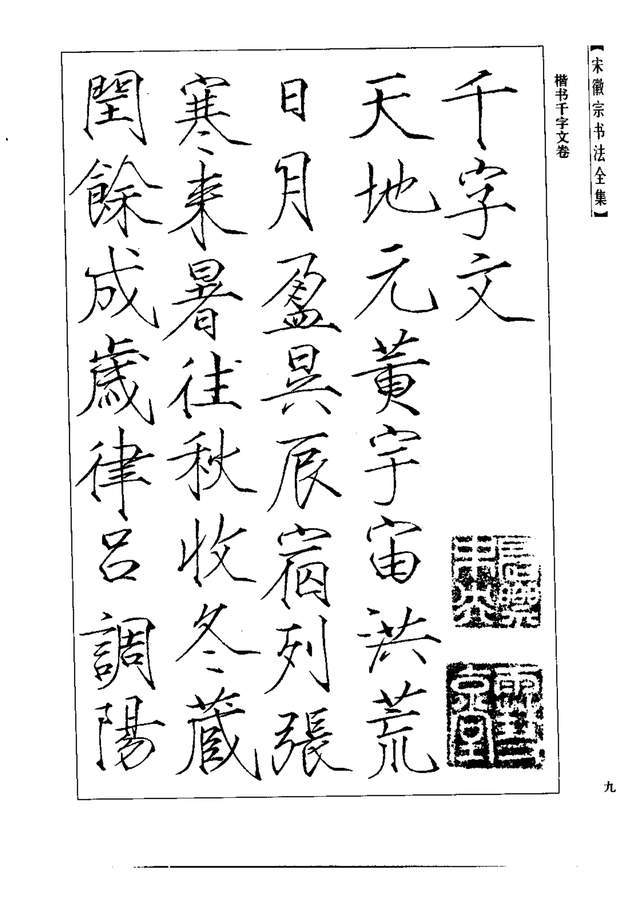 【宋徽宗书法全集】
楷书千字文卷
千字文
天地元黄宇宙洪荒
日月盈昃辰宿列張
寒来暑往秋收冬藏
閏餘成歲律呂調陽
九